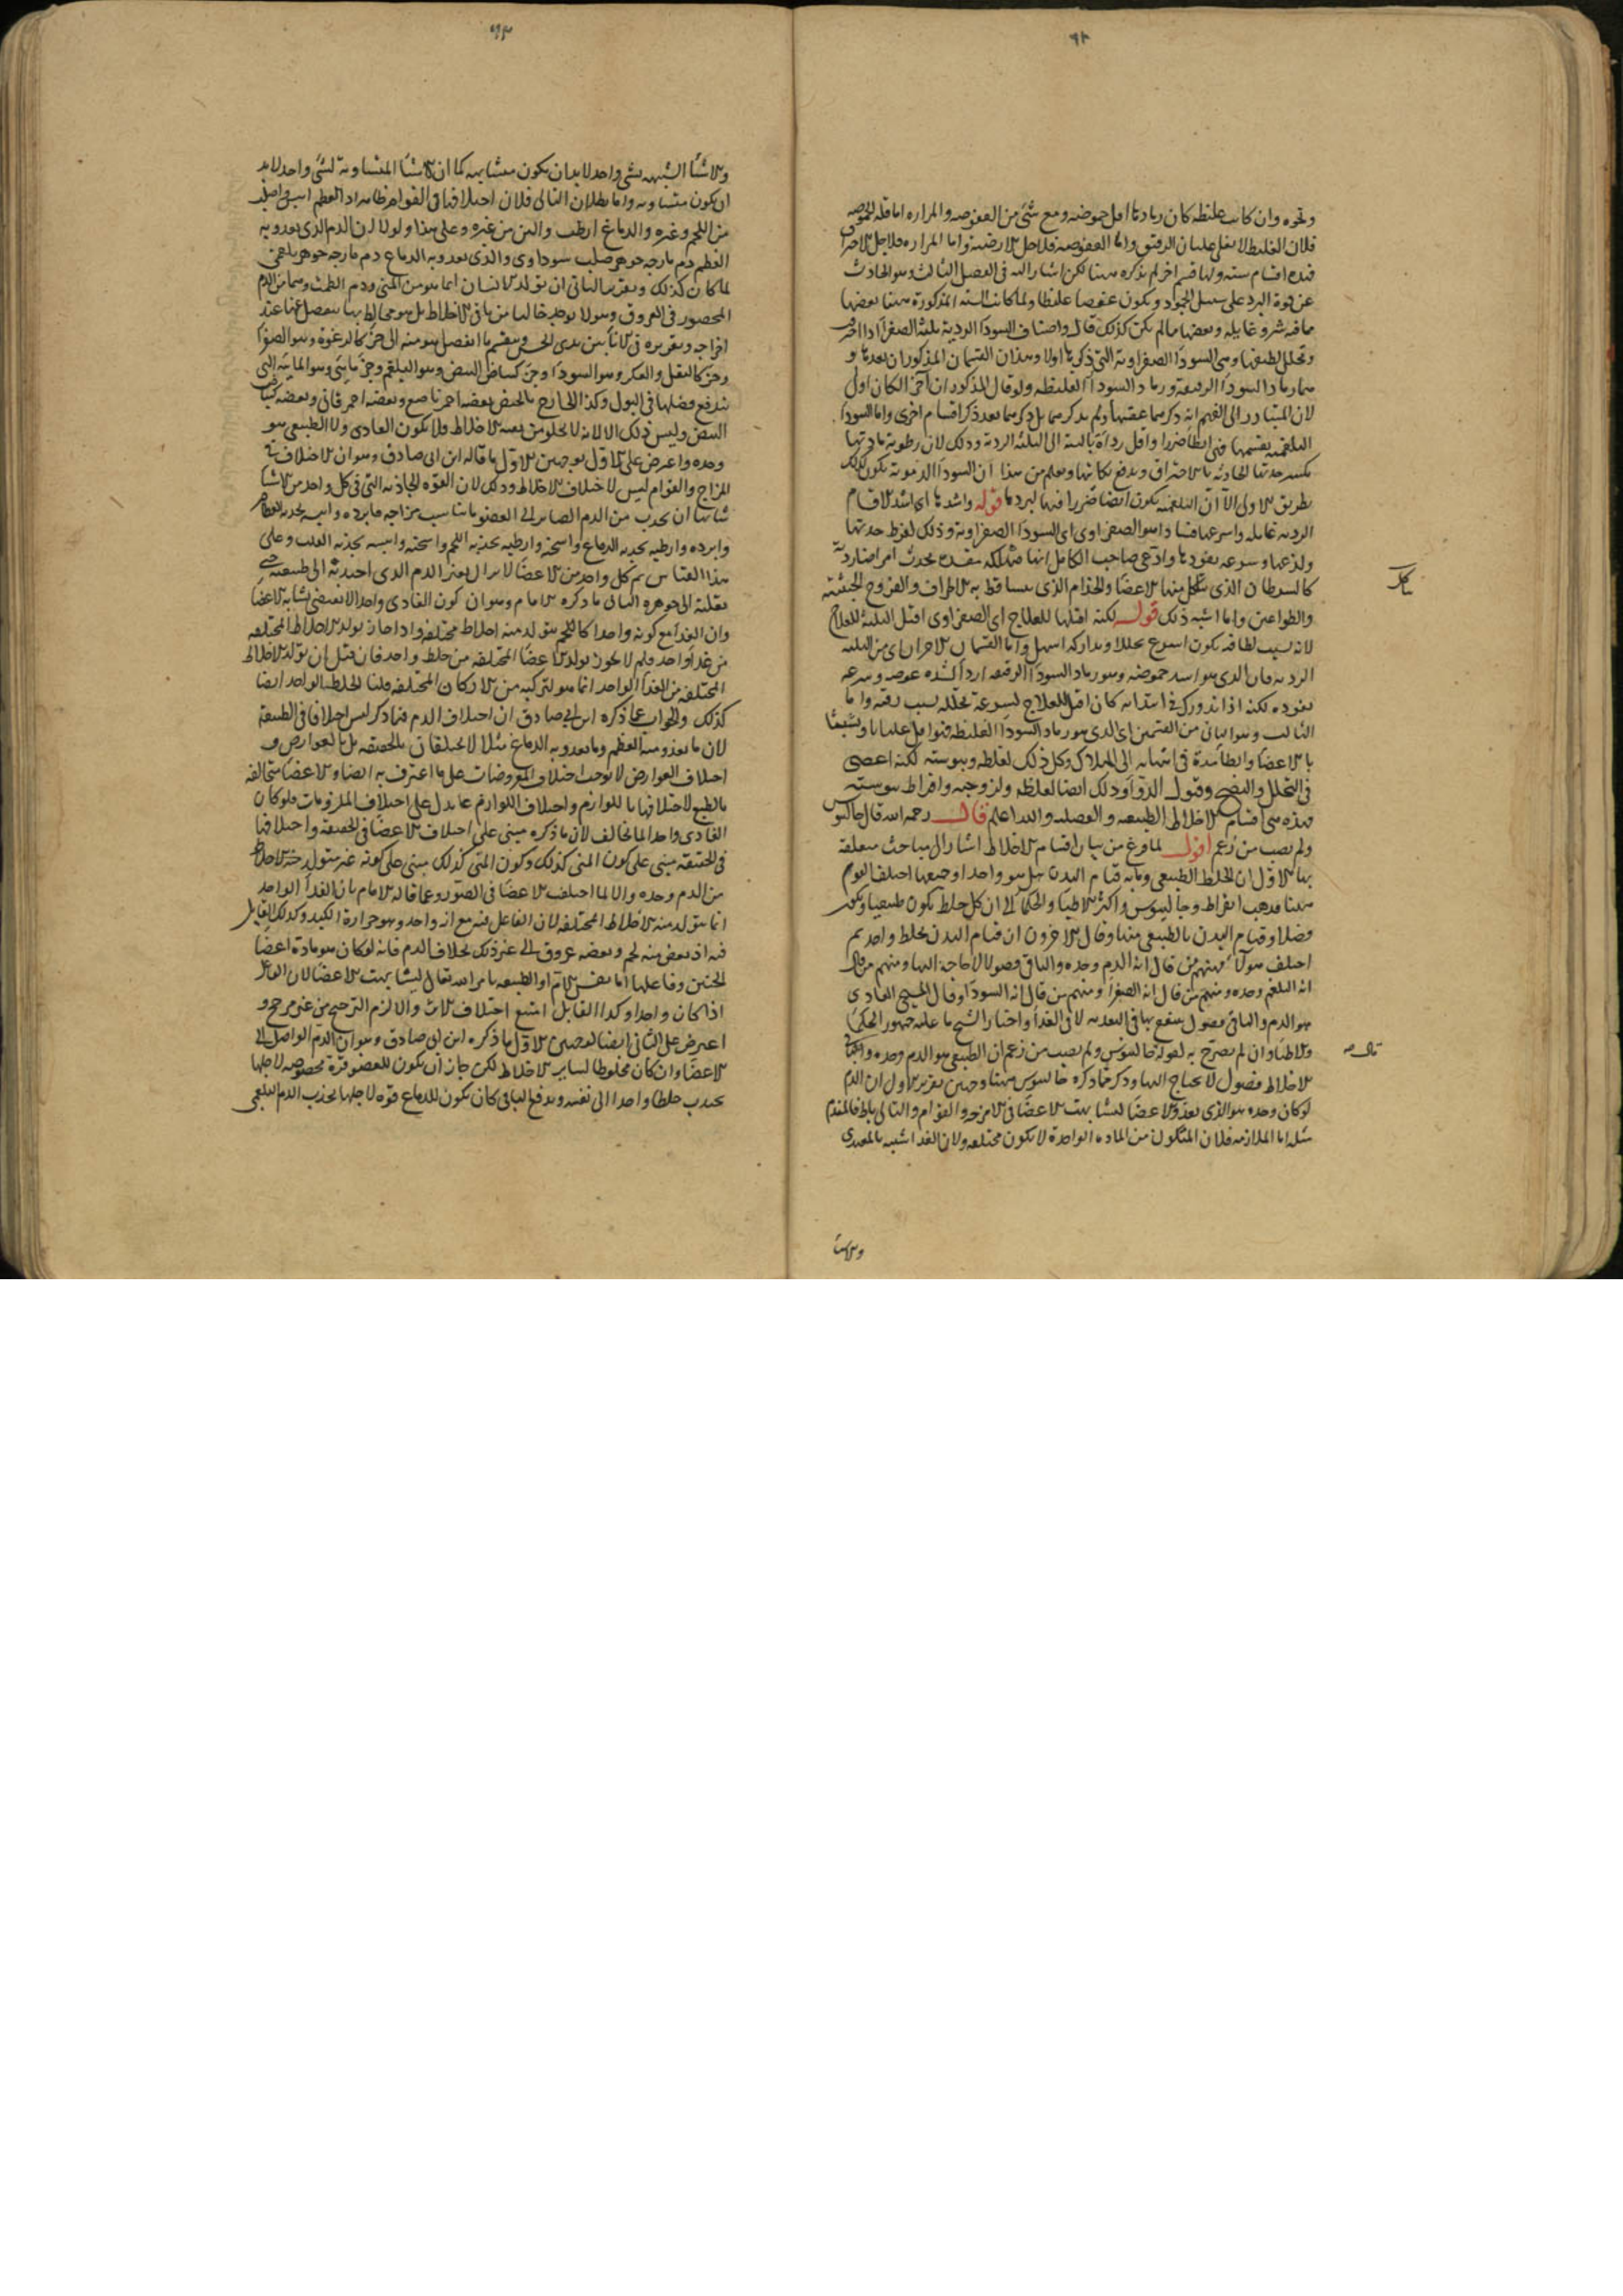 ٦٢
ونحوه وان كانت غليظه كان رمادها اقل حموضه ومع شئ من العفوصه والمراره اما قله الحموضه
فلان الغليظ لا يغلى غليان الرقيق واما العفوصه فلاجل الارضيه واما المراره فلاجل الاحتراق
فهذه اقسام سته ولها قسم اخر لم يذكره ههنا لكن اشار اليه فى الفصل الثالث وهو الحادث
عن قوة البرد على سبيل الجمود ويكون عفصا غليظا ولما كانت السته المذكورة ههنا بعضها
ما فيه شر وغايله وبعضها مالم يكن كذلك قال واصناف السودا الرديه ثلثة الصفرا اذا احترقت
وتحلل لطيفها وهى السودا الصفراويه التى ذكرها اولا وهذان القسمان المذكوران بعدها و
هما رماد السودا الرقيقة ورماد السودا الغليظه ولو قال المذكوران اخيرا لكان اولى
لان المتبادر الى الفهم انه ذكرهما عقبها ولم يذكرهما بل ذكرهما بعد ذكر اقسام اخرى واما السودا
البلغميه بقسميها فهى ابطا ضررا واقل رداة بالنسبة الى الثلثه الرديه وذلك لان رطوبة مادتها
تكسر حدتها الحادثه بالاحتراق وتدفع نكايتها ويعلم من هذا ان السودا الدمويه تكون كذلك
بطريق الاولى الا ان البلغميه يكون ايضا ضررا فيها لبردها قوله واشدها اى اشد الاقسام
الرديه غايله واسرعها فسادا هو الصفراوى اى السودا الصفراويه وذلك لفرط حدتها
ولذعها وسرعه نفوذها وادعى صاحب الكامل انها مهلكه مفسده تحدث امراضا رديه
كالسرطان الذى يتاكل منها الاعضا والجذام الذى يتساقط به الاطراف والقروح الخبيثه
والطواعين وما اشبه ذلك قوله لكنه اقبلها للعلاج اى الصفراوى اقبل الثلثة للعلاج
لانه بسبب لطافته يكون اسرع تحللا وتداركه اسهل واما القسمان الاخران اى من الثلثه
الرديه فان الذى هو اشد حموضه وهو رماد السودا الرقيقه اردأ لشده غوصه وسرعه
نفوذه لكنه اذا تدورك فى ابتدائه كان اقبل للعلاج لسرعة تحلله بسبب رقته واما
الثالث وهو الثانى من القسمين اى الذى هو رماد السودا الغليظه فهو اقل غليانا وتشبثا
بالاعضا وابطا مدة فى انتهائه الى الهلاك وكل ذلك لغلظه ويبوسته لكنه اعصى
فى التحلل والنضج وقبول الدوا وذلك ايضا لغلظه ولزوجته وافراط يبوسته
فهذه هى اقسام الاخلاط الطبيعيه والفضليه والله اعلم قال رحمه الله قال جالينوس
ولم يصب من زعم اقول لما فرغ من بيان اقسام الاخلاط اشار الى مباحث متعلقة
بها الاول ان الخلط الطبيعى وما به قيام البدن هل هو واحد او جميعها اختلف القوم
ههنا فذهب ابقراط وجالينوس واكثر الاطبا والحكما الى ان كل خلط يكون طبيعيا ويكون
فضلا وقيام البدن بالطبيعى منها وقال الاخرون ان قيام البدن بخلط واحد ثم
اختلف هولاء فمنهم من قال انه الدم وحده والباقى فضول لا حاجة اليها ومنهم من قال
انه البلغم وحده ومنهم من قال انه الصفرا ومنهم من قال انه السودا وقال المسيحى الغاذى
هو الدم والباقى فضول ينتفع بها فى التغذيه لا فى الغذا واختار الشيخ ما عليه جمهور الحكما
والاطبا وان لم يصرح به لقوله جالينوس ولم يصب من زعم ان الطبيعى هو الدم وحده والباقى
الاخلاط فضول لا يحتاج اليها وذكر مما ذكره جالينوس ههنا وجهين تقرير الاول ان الدم
لو كان وحده هو الذى يغذو الاعضا لتشابهت الاعضا فى الامزجه والقوام والتالى باطل فالمقدم
مثله اما الملازمه فلان المتكون من الماده الواحدة لا يكون مختلفه ولان الغذا شبيه بالمغتذى
والاشيا
٦٣
والاشيا الشبيهه بشى واحد لا بد ان يكون متشابهه كما ان الاشيا المتساويه لشى واحد لا بد
ان يكون متساويه واما بطلان التالى فلان اختلافها فى القوام ظاهر اذ العظم ايبس واصلب
من اللحم وغيره والدماغ ارطب والين من غيره وعلى هذا ولولا ان الدم الذى يغذو به
العظم دم مازجه جوهر صلب سوداوى والذى يغذو به الدماغ دم مازجه جوهر بلغمى
لما كان كذلك وتقرير الثانى ان تولد الانسان انما هو من المنى ودم الطمث وهما من الدم
المحصور فى العروق وهو لا يوجد خاليا من باقى الاخلاط بل هو مخالط بها ينفصل عنها عند
اخراجه وتقريره فى الانا بين يدى الحس وينقسم ما انفصل هو منه الى جزء كالرغوة وهو الصفرا
وجزء كالثفل والعكر وهو السودا وجزء كبياض البيض وهو البلغم وجزء مائى وهو المائيه التى
يندفع فضلها فى البول وكذا الخارج بالحيض بعضه احمر ناصع وبعضه احمر قانى وبعضه كبياض
البيض وليس ذلك الا لانه لا يخلو من بقية الاخلاط فلا يكون الغاذى ولا الطبيعى هو
وحده واعترض على الاول بوجهين الاول ما قاله ابن ابى صادق وهو ان الاختلاف فى
المزاج والقوام ليس لاختلاف الاخلاط وذلك لان القوه الجاذبه التى فى كل واحد من الاشيا
شانها ان تجذب من الدم الصاير الى العضو ما يناسب مزاجه فابرده وايبسه يجذبه العظام
وابرده وارطبه يجذبه الدماغ واسخنه وارطبه يجذبه اللحم واسخنه وايبسه يجذبه القلب وعلى
هذا القياس ثم كل واحد من الاعضا لا يزال يغير الدم الذى اجتذبه الى طبيعته حتى
يقلبه الى جوهره الثانى ما ذكره الامام وهو ان كون الغاذى واحدا لا يقتضى تشابه الاعضا
وان الغذا مع كونه واحدا كاللحم يتولد منه اخلاط مختلفه واذا جاز تولد الاخلاط المختلفه
من غذا واحد فلم لا يجوز تولد الاعضا المختلفه من خلط واحد فان قيل ان تولد الاخلاط
المختلفه من الغذا الواحد انما هو لتركيبه من الاركان المختلفه قلنا الخلط الواحد ايضا
كذلك والجواب عما ذكره ابن ابى صادق ان اختلاف الدم فيما ذكر ليس اختلافا فى الطبيعة
لان ما يغذو منه العظم وما يغذو به الدماغ مثلا لا يختلفان بالحقيقه بل بالعوارض و
اختلاف العوارض لا يوجب اختلاف المعروضات على ما اعترف به ايضا والاعضا متخالفه
بالطبع لاختلافها باللوازم واختلاف اللوازم مما يدل على اختلاف الملزومات فلو كان
الغاذى واحدا لما تخالف لان ما ذكره مبنى على اختلاف الاعضا فى الحقيقه واختلافها
فى الحقيقه مبنى على كون المنى كذلك وكون المنى كذلك مبنى على كونه غير متولد عن الاخلاط
من الدم وحده والا لما اختلف الاعضا فى الصور وعما قاله الامام بان الغذا الواحد
انما يتولد منه الاخلاط المختلفه لان الفاعل فيه مع انه واحد وهو حرارة الكبد وكذلك القابل
فيه اذ بعض منه لحم وبعضه عروق الى غير ذلك بخلاف الدم فانه لو كان هو مادة اعضا
الجنين وفاعلها اما نفس الام او الطبيعه بامر الله تعالى لتشابهت الاعضا لان الفاعل
اذا كان واحدا وكذا القابل امتنع اختلاف الاثر والا لزم الترجيح من غير مرجح و
اعترض على الثانى ايضا بوجهين الاول ما ذكره ابن ابى صادق وهو ان الدم الواصل الى
الاعضا وان كان مخلوطا بسائر الاخلاط لكن جاز ان يكون للعضو قوة مخصوصه لاجلها
يجذب خلطا واحدا الى نفسه ويدفع الباقى كان يكون للدماغ قوه لاجلها يجذب الدم البلغمى